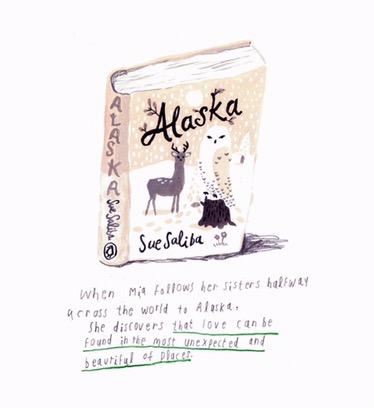 ALASKA Sue Saliba
Alaska
Sue Saliba
When Mia follows her sisters halfway
across the world to Alaska,
She discovers that love can be
found in the most unexpected and
beautiful of places.